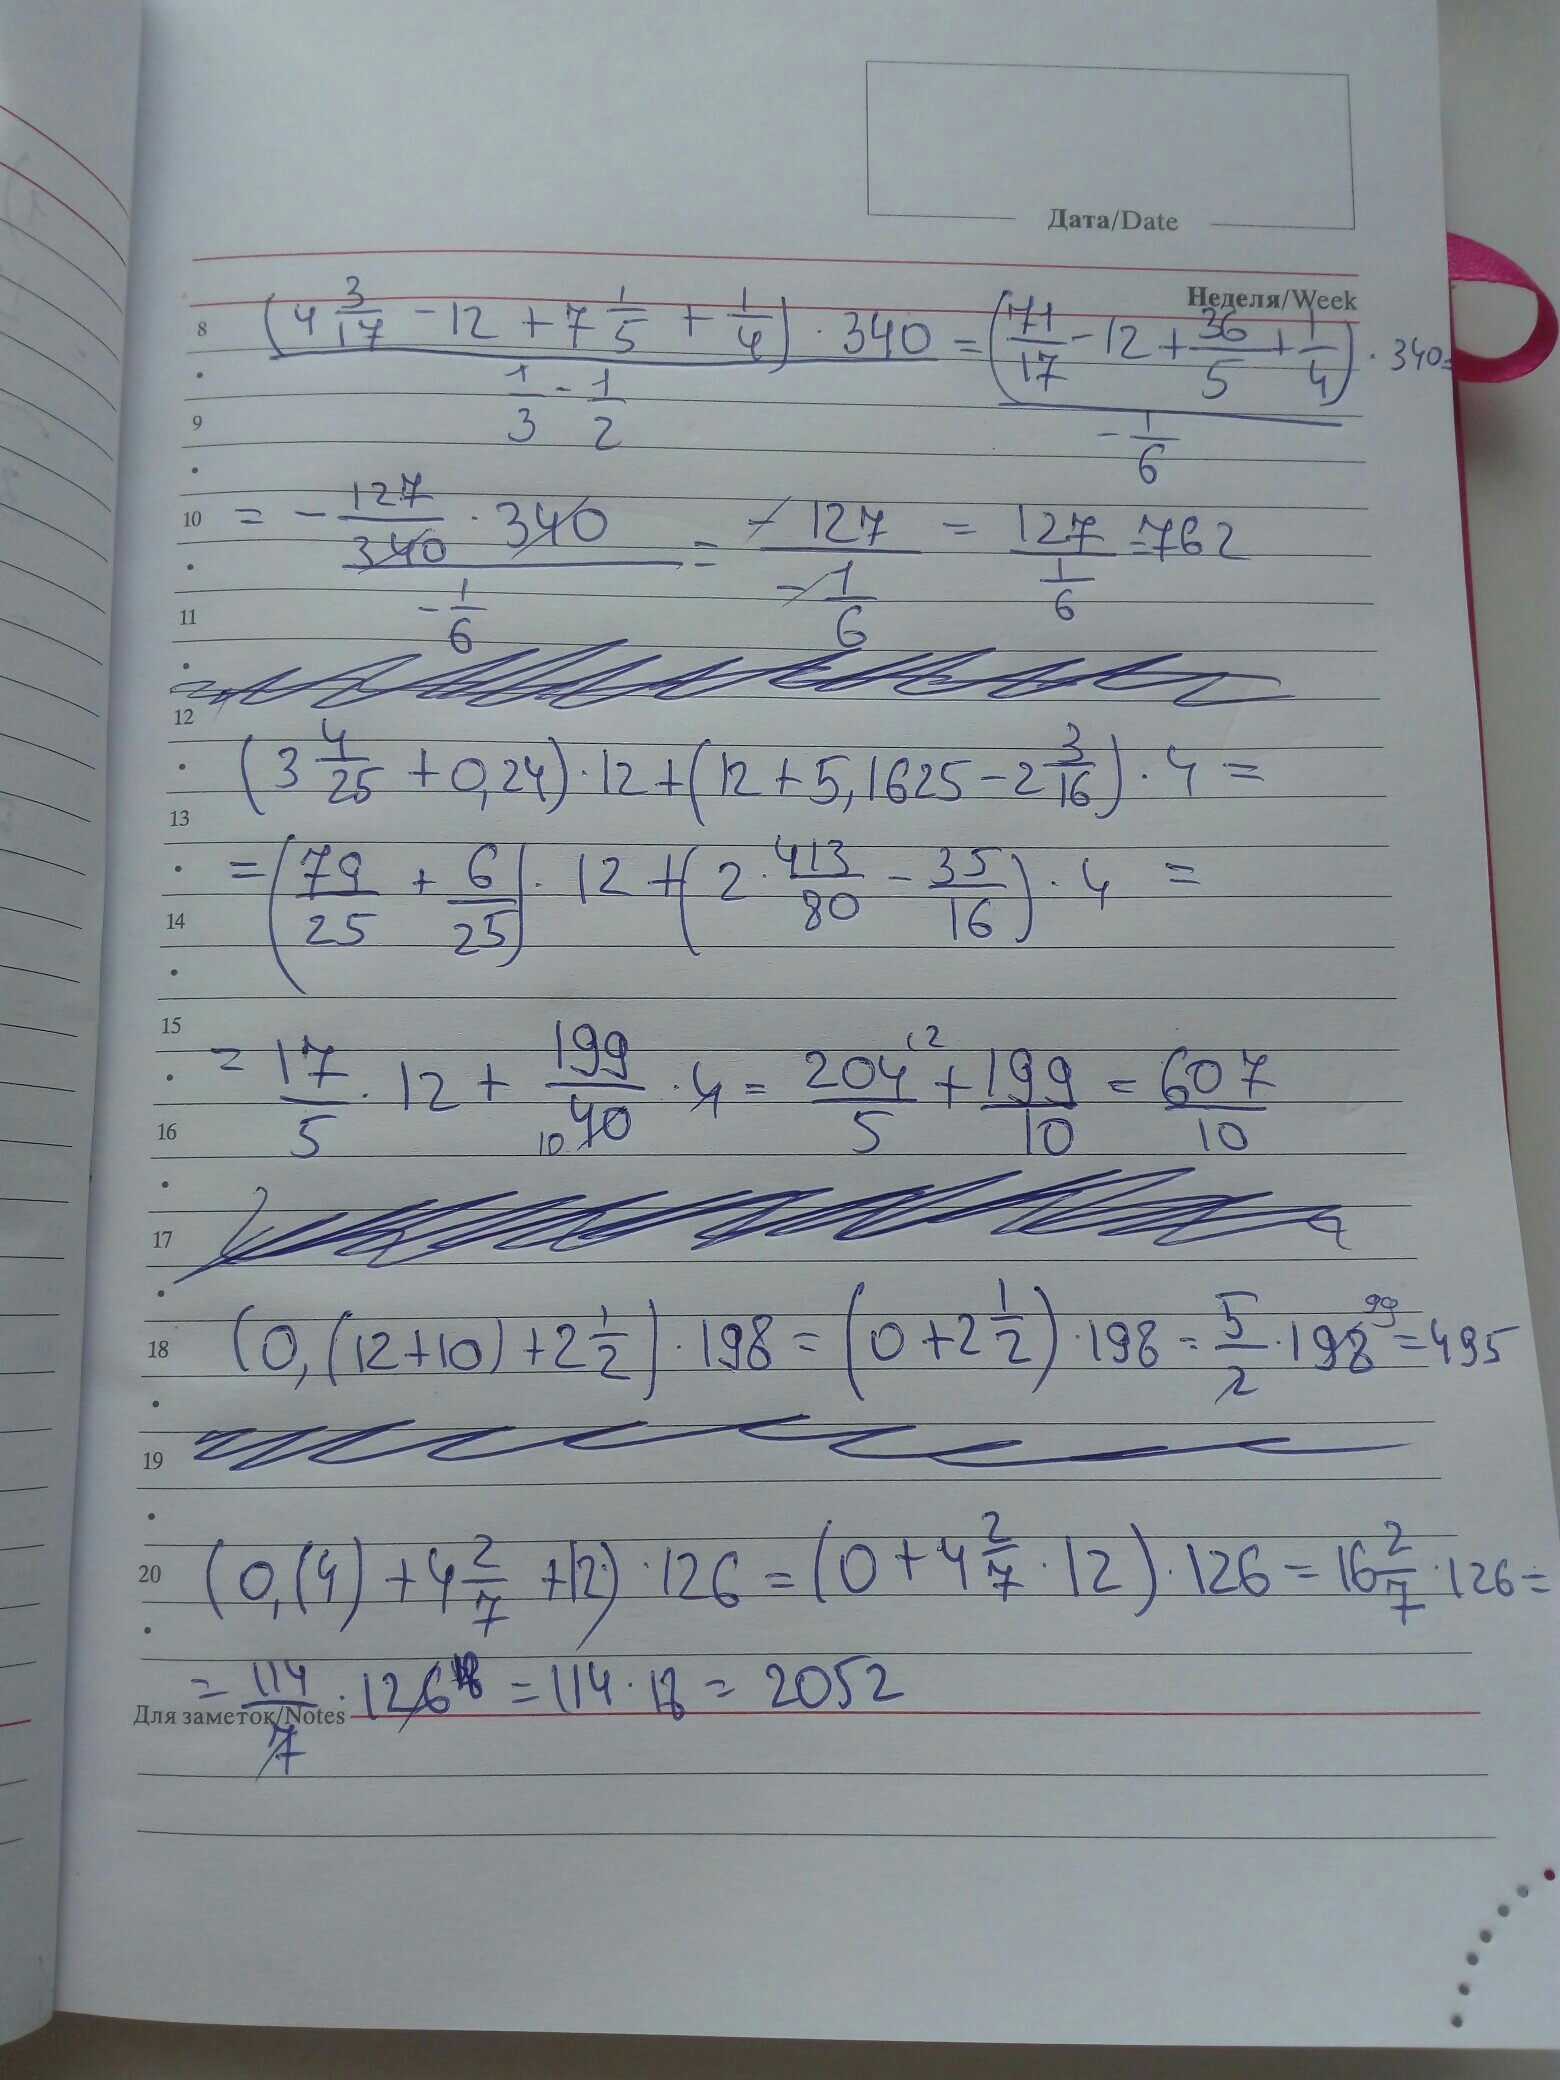 Дата/Date
Неделя/Week
8 (4 3/17 - 12 + 7 1/5 + 1/4) · 340 = (71/17 - 12 + 36/5 + 1/4) · 340 =
1/3 - 1/2
- 1/6
9
10 = - 127/340 · 340 = - 127 = 127 = 762
- 1/6
- 1/6
1/6
11
12
(3 4/25 + 0,24) · 12 + (12 + 5,1625 - 2 3/16) · 4 =
13
= (79/25 + 6/25) · 12 + (2 · 413/80 - 35/16) · 4 =
14
15
= 17/5 · 12 + 199/40 10 · 4 = 204/5 (2 + 199/10 = 607/10
16
17
18 (0,(12+10) + 2 1/2) · 198 = (0 + 2 1/2) · 198 = 5/2 · 198 99 = 495
19
20 (0,(4) + 4 2/7 + 12) · 126 = (0 + 4 2/7 · 12) · 126 = 16 2/7 · 126 =
= 114/7 · 126 18 = 114 · 18 = 2052
Для заметок/Notes